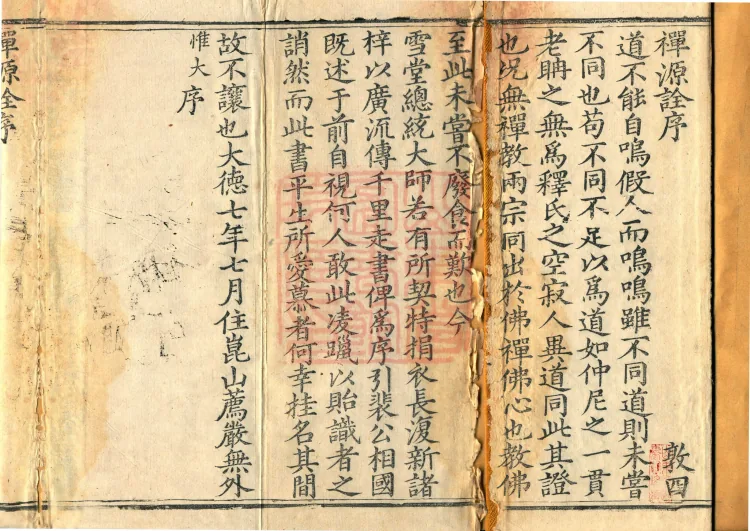 禪源詮序
道不能自鳴假人而鳴鳴雖不同道則未嘗
不同也苟不同不足以為道如仲尼之一貫
老聃之無為釋氏之空寂人異道同此其證
也況無禪教兩宗同出於佛禪佛心也教佛
至此未嘗不廢食而歎也今
雪堂總統大師若有所契特捐衣長復新諸
梓以廣流傳千里走書俾為序引裴公相國
既述于前自視何人敢此凌躐以貽識者之
誚然而此書平生所愛慕者何幸挂名其間
故不讓也大德七年七月住崑山薦嚴無外
惟大序
禪源詮序
敦四